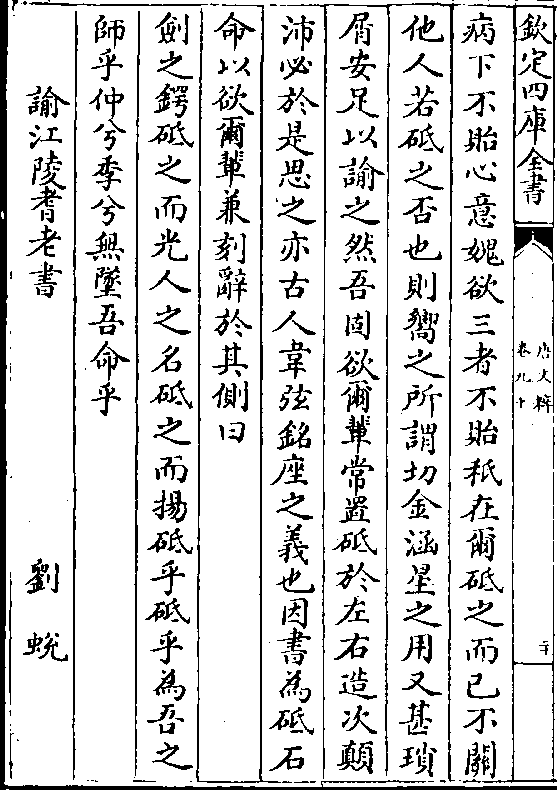 欽定四庫全書
唐文粹
卷九十
二十
病下不貽心意媿欲三者不貽秖在爾砥之而已不關
他人若砥之否也則嚮之所謂切金涵星之用又甚瑣
屑安足以諭之然吾固欲爾輩常置砥於左右造次顛
沛必於是思之亦古人韋弦銘座之義也因書為砥石
命以欲爾輩兼刻辭於其側曰
劍之鍔砥之而光人之名砥之而揚砥乎砥乎為吾之
師乎仲兮季兮無墜吾命乎
諭江陵耆老書 劉蛻